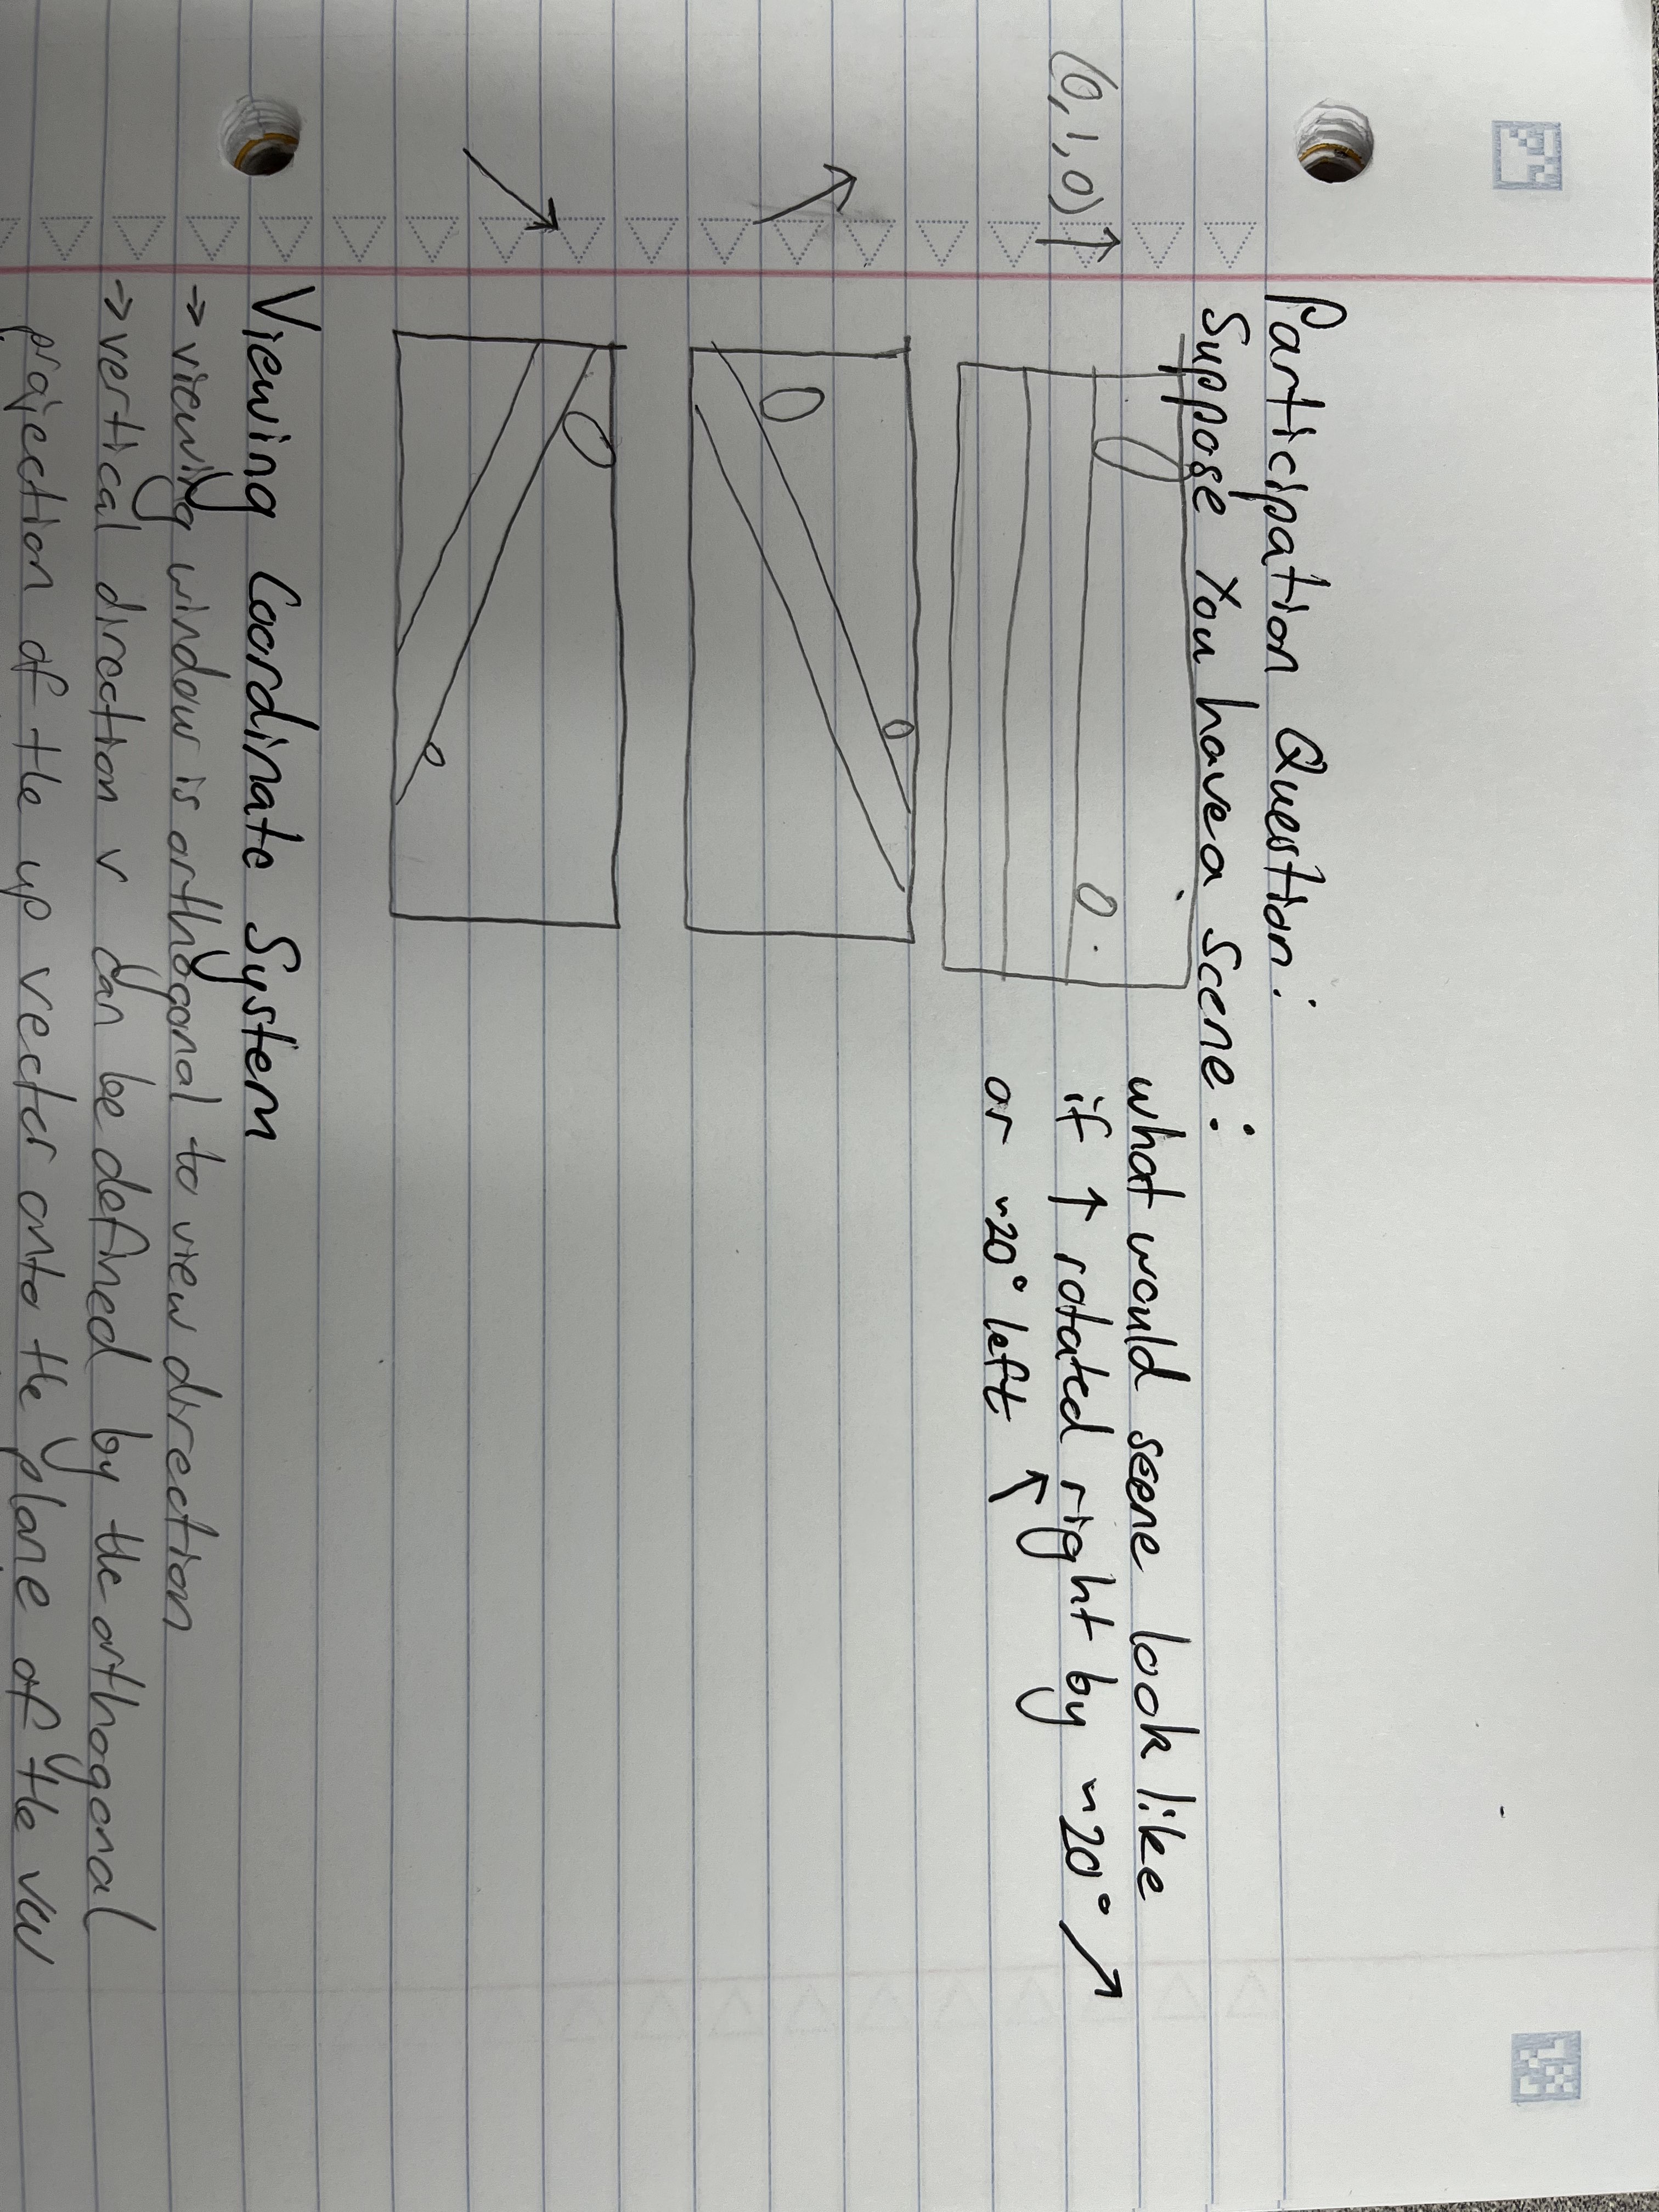 Participation Question:
Suppose You have a scene:
(0,1,0) ↑
what would scene look like
if ↑ rotated right by ~20° ↗
or ~20° left ↖
Viewing Coordinate System
→ viewing window is orthogonal to view direction
→ vertical direction v can be defined by the orthogonal
projection of the up vector onto the plane of the view